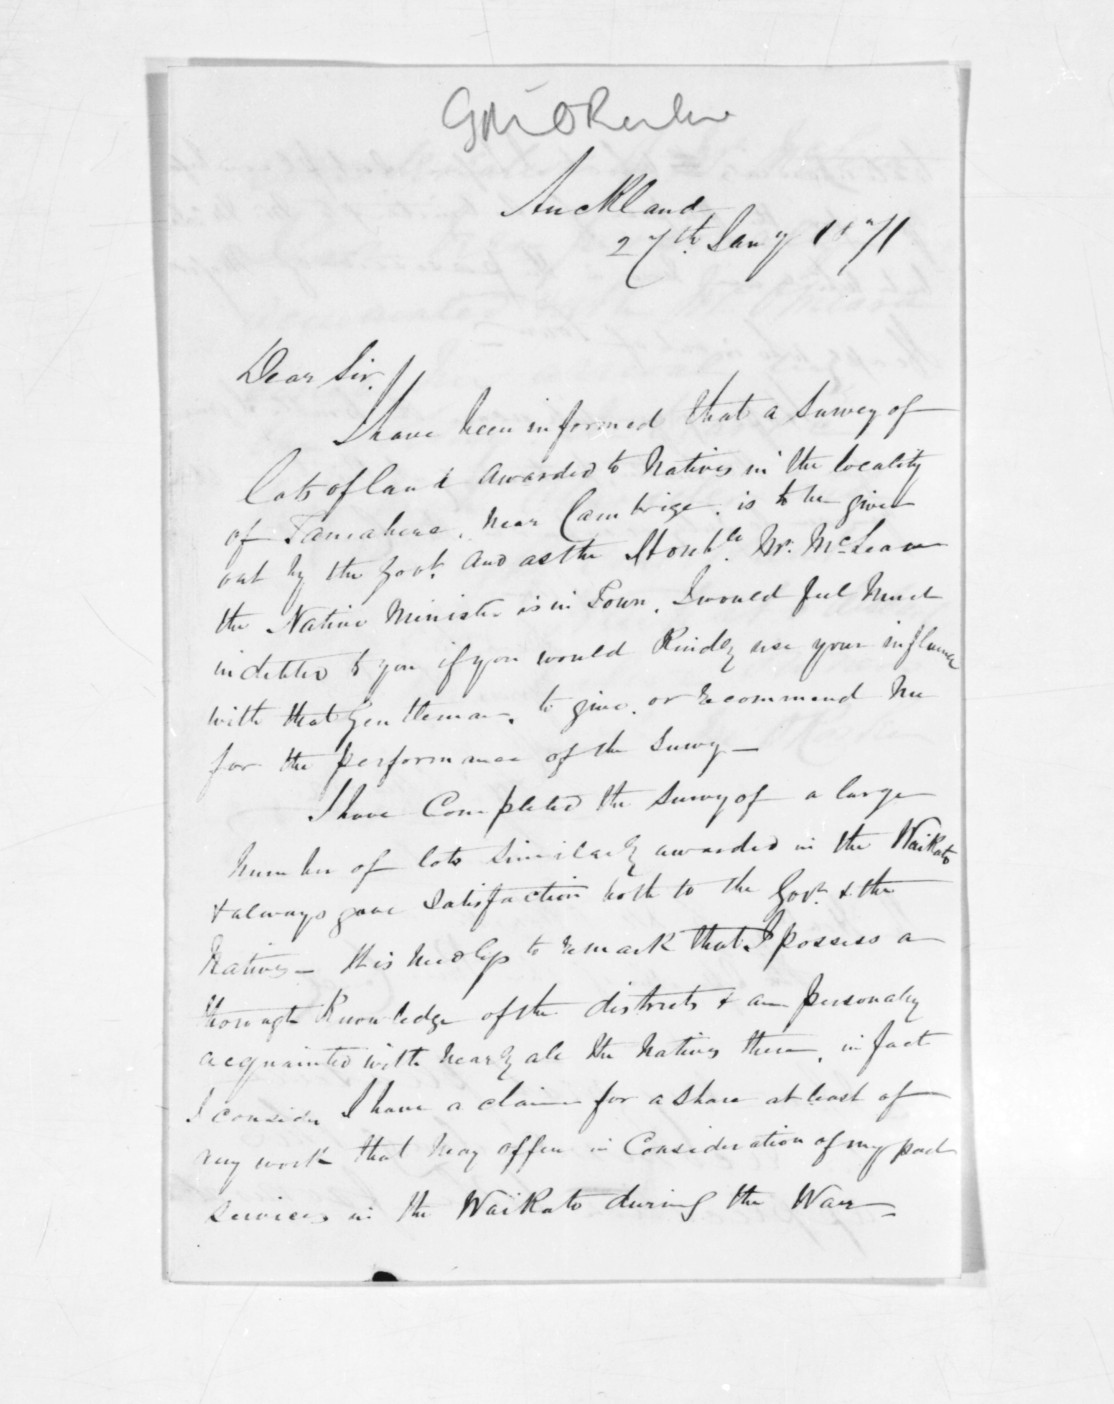 Auckland
27th Jany 1871
Dear Sir.
I have been informed that a Survey of
lots of land awarded to Natives in the locality
of Tamahere, near Cambrige. is to be given
out by the Govt. and as the Honble. Mr. McLean
the Native Minister is in Town, I would feel much
indebted to you if you would Kindly use your influence
with that Gentleman, to give, or recommend me
for the performance of the Survey —
I have Completed the Survey of a large
number of lots Similarly awarded in the Waikato
& always gave satisfaction both to the Govt. & the
Natives — It is needless to remark that I possess a
thorough Knowledge of the districts & am personally
acquainted with nearly all the Natives there, in fact
I consider I have a claim for a share at least of
any work that may offer in Consideration of my past
services in the Waikato during the War —